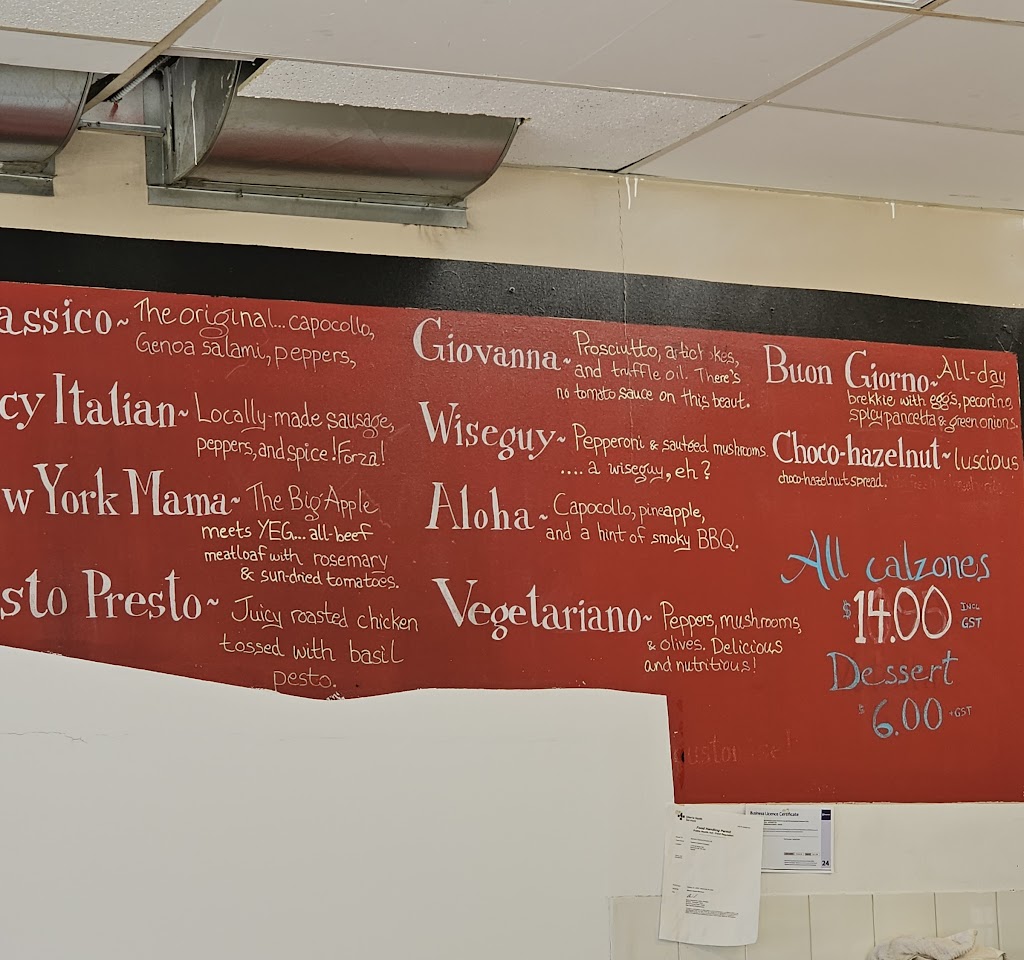 assico~ The original... capocollo,
Genoa salami, peppers,
cy Italian~ Locally-made sausage,
peppers, and spice! Forza!
w York Mama~ The Big Apple
meets YEG... all-beef
meatloaf with rosemary
& sun-dried tomatoes.
sto Presto~ Juicy roasted chicken
tossed with basil
pesto.
Giovanna~ Prosciutto, artichokes,
and truffle oil. There's
no tomato sauce on this beaut.
Wiseguy~ Pepperoni & sautéed mushrooms
.... a wiseguy, eh?
Aloha~ Capocollo, pineapple,
and a hint of smoky BBQ.
Vegetariano~ Peppers, mushrooms,
& olives. Delicious
and nutritious!
Buon Giorno~ All-day
brekkie with eggs, pecorino,
spicy pancetta & green onions.
Choco-hazelnut~ luscious
choco-hazelnut spread.
All calzones
$14.00 INCL GST
Dessert
$6.00 +GST
Food Handling Permit
Business Licence Certificate
24